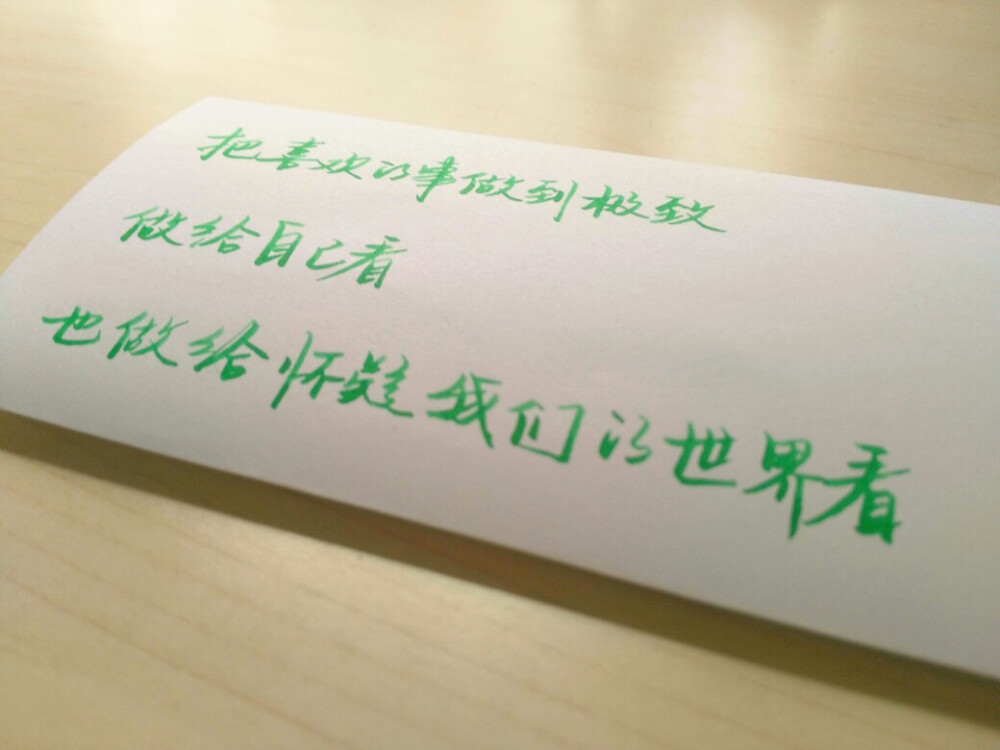 把喜欢的事做到极致
做给自己看
也做给怀疑我们的世界看